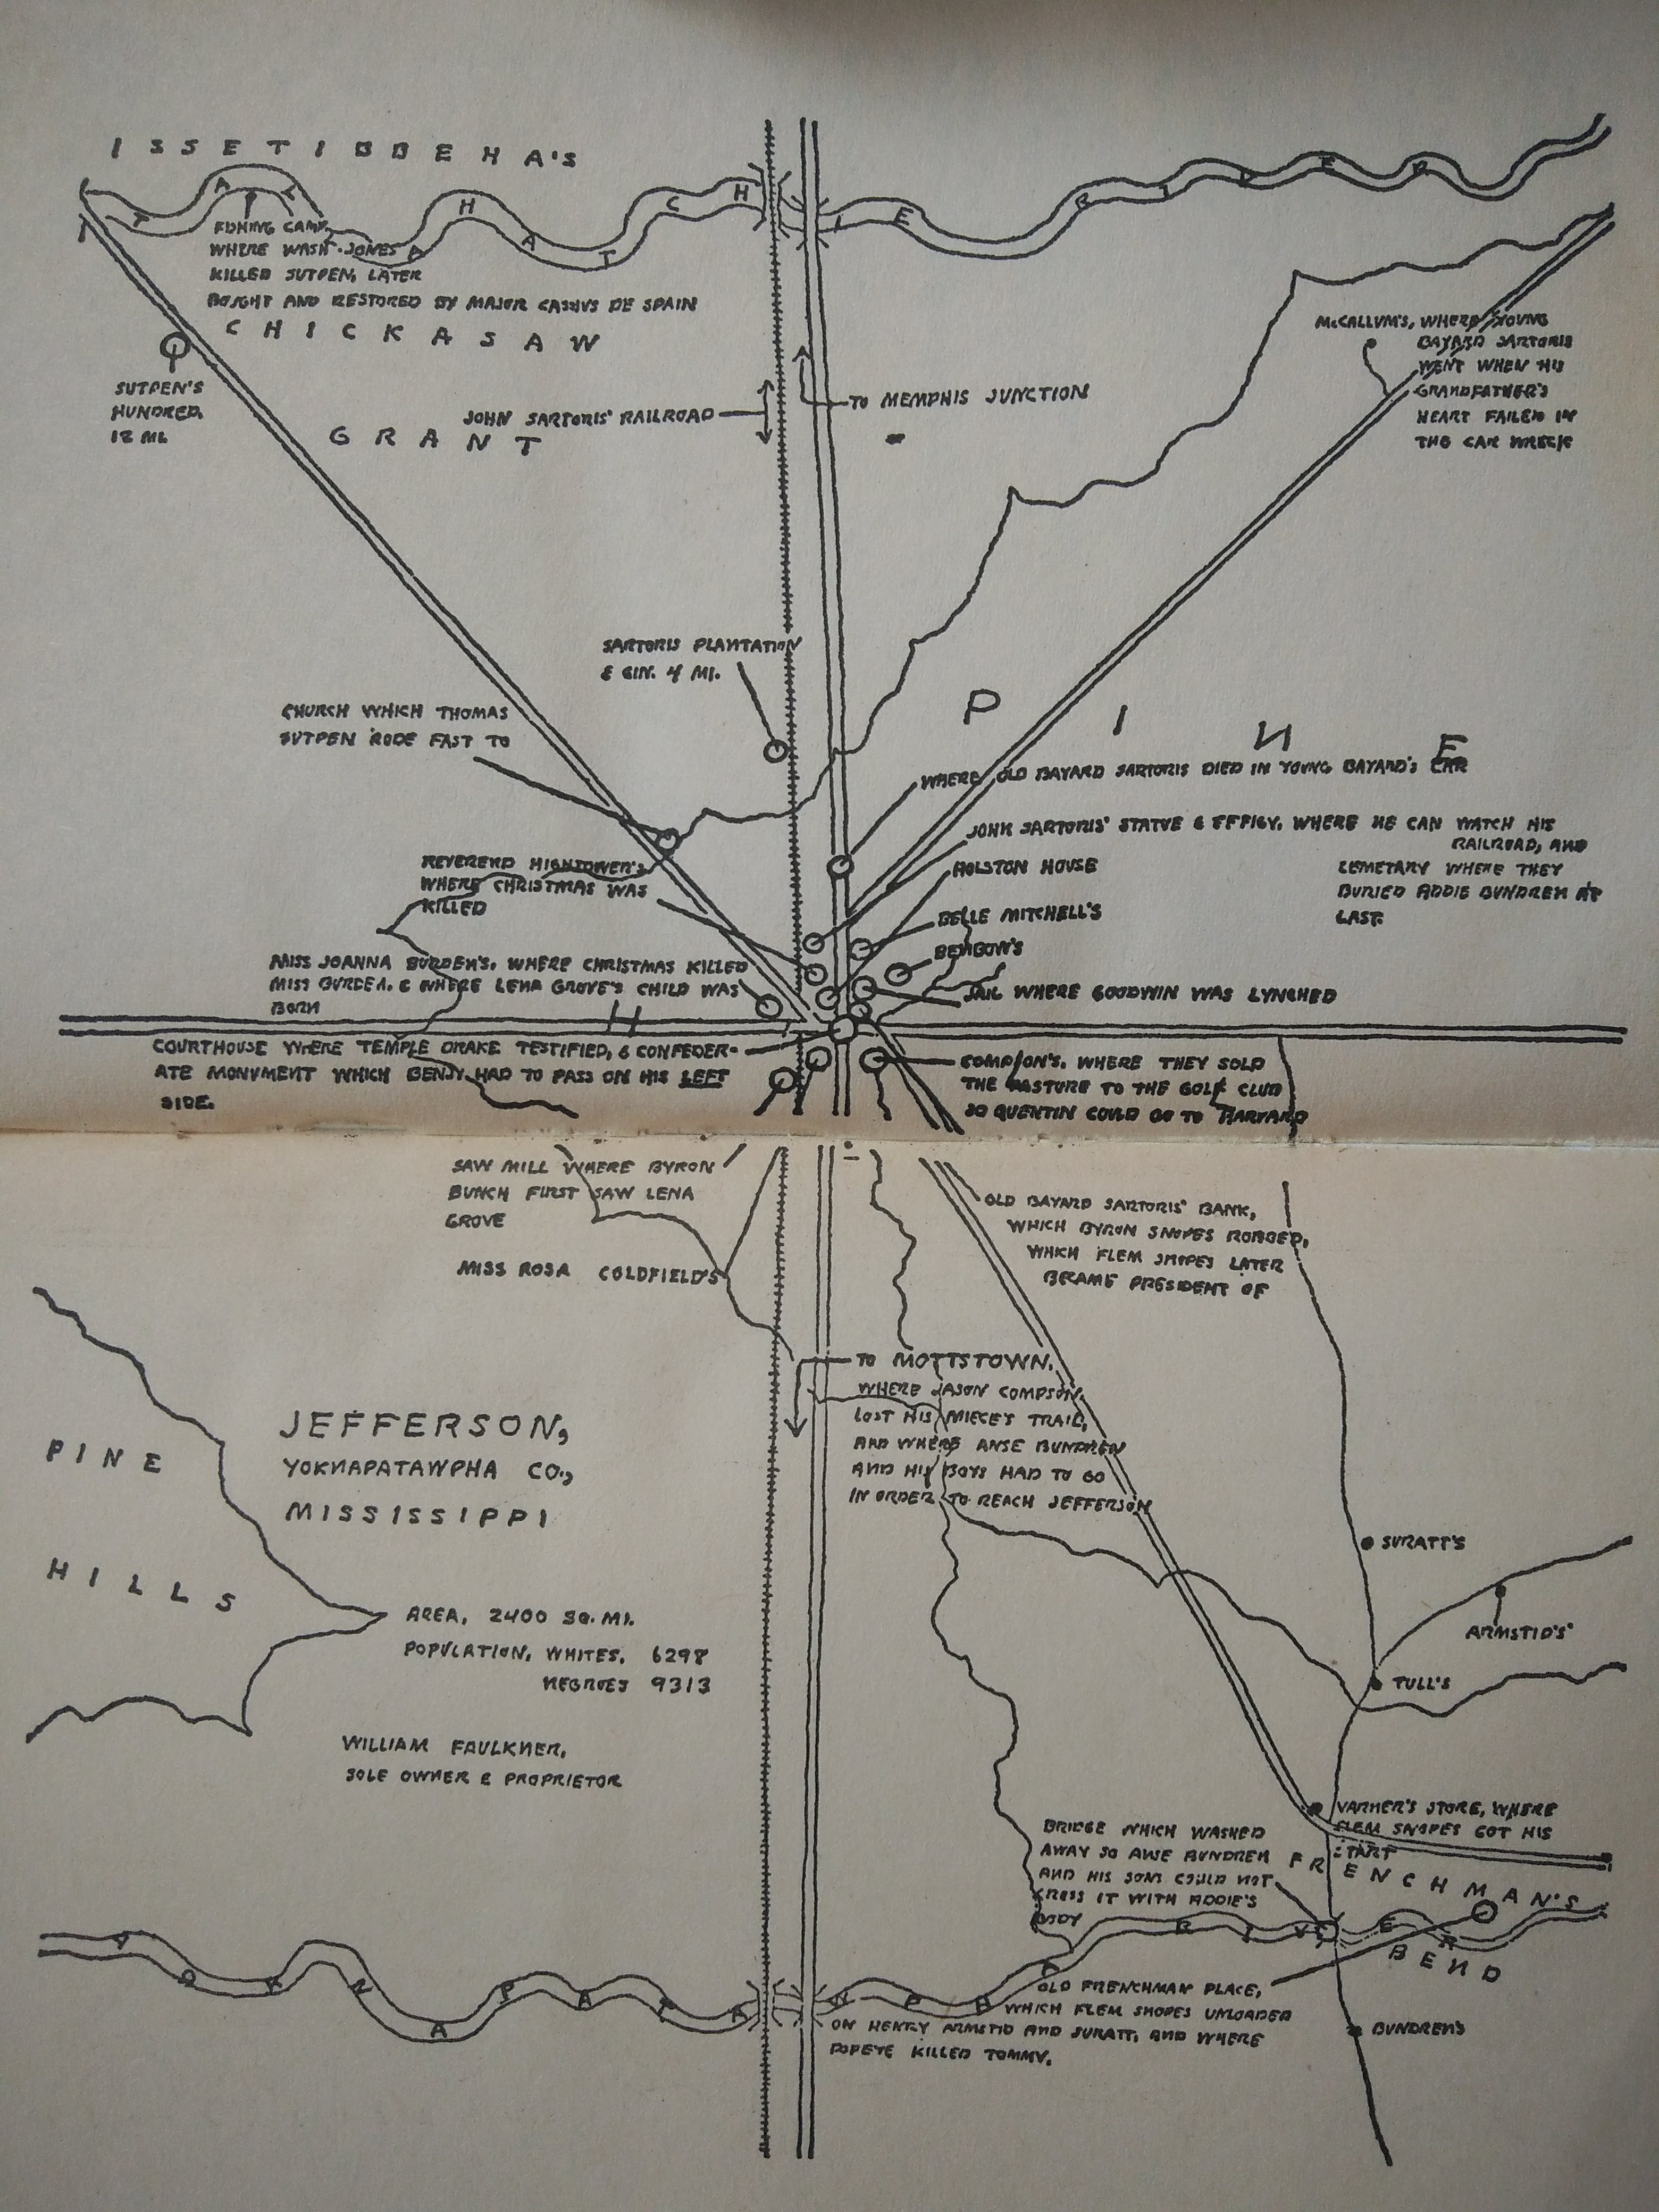 ISSETIBBEHA'S
TALLAHATCHIE RIVER
FISHING CAMP
WHERE WASH JONES
KILLED SUTPEN, LATER
BOUGHT AND RESTORED BY MAJOR CASSIUS DE SPAIN
CHICKASAW
GRANT
SUTPEN'S
HUNDRED,
12 MI.
JOHN SARTORIS' RAILROAD
TO MEMPHIS JUNCTION
McCALLUM'S, WHERE YOUNG
BAYARD SARTORIS
WENT WHEN HIS
GRANDFATHER'S
HEART FAILED IN
THE CAR WRECK
SARTORIS PLANTATION
& GIN. 4 MI.
CHURCH WHICH THOMAS
SUTPEN RODE FAST TO
PINE
WHERE OLD BAYARD SARTORIS DIED IN YOUNG BAYARD'S CAR
JOHN SARTORIS' STATUE & EFFIGY, WHERE HE CAN WATCH HIS
RAILROAD, AND
CEMETARY WHERE THEY
BURIED ADDIE BUNDREN AT
LAST.
HOLSTON HOUSE
REVEREND HIGHTOWER'S
WHERE CHRISTMAS WAS
KILLED
BELLE MITCHELL'S
BENBOW'S
MISS JOANNA BURDEN'S, WHERE CHRISTMAS KILLED
MISS BURDEN, & WHERE LENA GROVE'S CHILD WAS
BORN
JAIL WHERE GOODWIN WAS LYNCHED
H
COURTHOUSE WHERE TEMPLE DRAKE TESTIFIED, & CONFEDER-
ATE MONUMENT WHICH BENJY HAD TO PASS ON HIS LEFT
SIDE.
COMPSON'S, WHERE THEY SOLD
THE PASTURE TO THE GOLF CLUB
SO QUENTIN COULD GO TO HARVARD
SAW MILL WHERE BYRON
BUNCH FIRST SAW LENA
GROVE
OLD BAYARD SARTORIS' BANK,
WHICH BYRON SNOPES ROBBED,
WHICH FLEM SNOPES LATER
BECAME PRESIDENT OF
MISS ROSA COLDFIELD'S
TO MOTTSTOWN,
WHERE JASON COMPSON
LOST HIS NIECE'S TRAIL,
AND WHERE ANSE BUNDREN
AND HIS BOYS HAD TO GO
IN ORDER TO REACH JEFFERSON
JEFFERSON,
YOKNAPATAWPHA CO.,
MISSISSIPPI
PINE
HILLS
AREA, 2400 SQ. MI.
POPULATION, WHITES, 6298
NEGROES 9313
WILLIAM FAULKNER,
SOLE OWNER & PROPRIETOR
SURATT'S
ARMSTID'S
TULL'S
VARNER'S STORE, WHERE
FLEM SNOPES GOT HIS
START
BRIDGE WHICH WASHED
AWAY SO ANSE BUNDREN
AND HIS SONS COULD NOT
CROSS IT WITH ADDIE'S
BODY
FRENCHMAN'S
BEND
YOKNAPATAWPHA RIVER
OLD FRENCHMAN PLACE,
WHICH FLEM SNOPES UNLOADED
ON HENRY ARMSTID AND SURATT, AND WHERE
POPEYE KILLED TOMMY.
BUNDREN'S